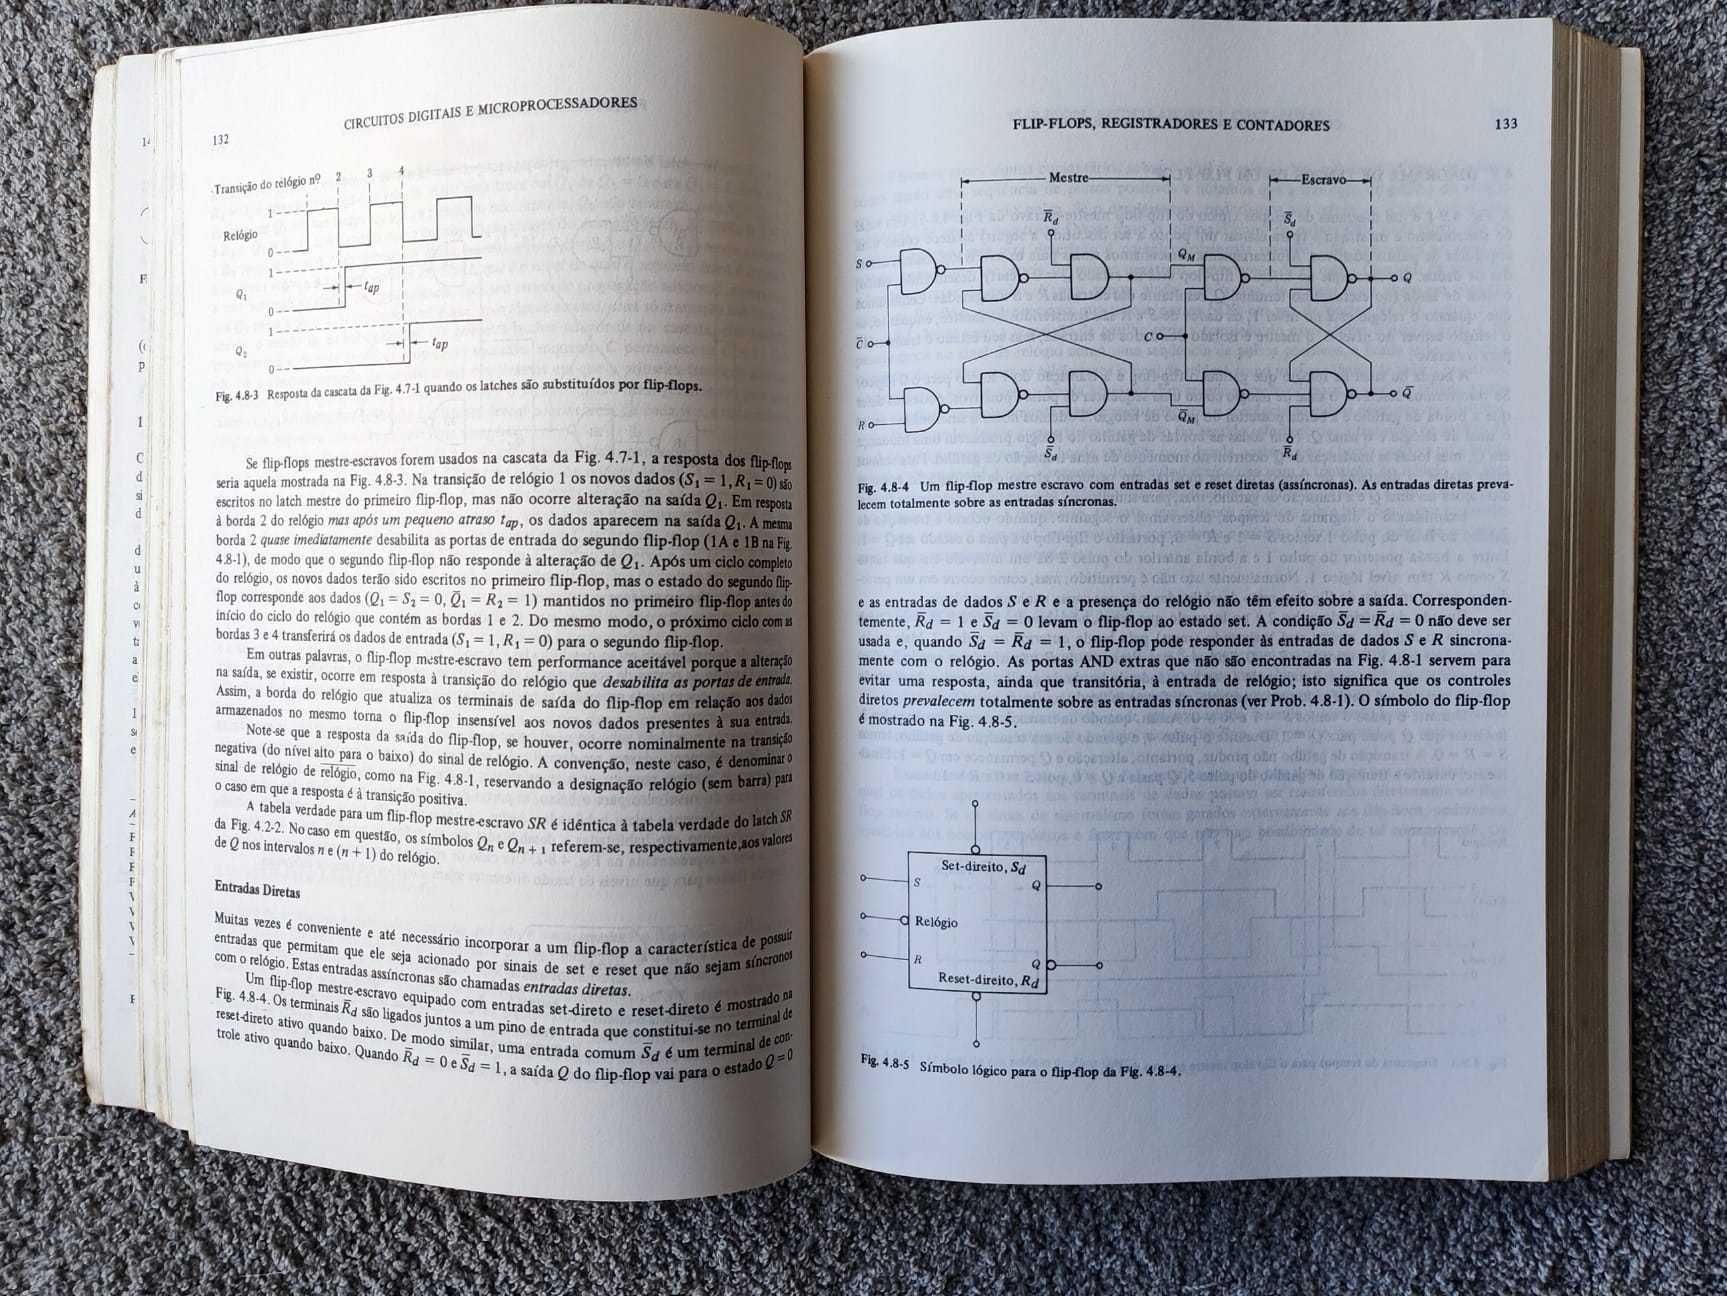 132
CIRCUITOS DIGITAIS E MICROPROCESSADORES
Transição do relógio nº 2 3 4
1
Relógio
0
1
Q₁
tap
0
1
Q₂
tap
0
Fig. 4.8-3 Resposta da cascata da Fig. 4.7-1 quando os latches são substituídos por flip-flops.
Se flip-flops mestre-escravos forem usados na cascata da Fig. 4.7-1, a resposta dos flip-flops
seria aquela mostrada na Fig. 4.8-3. Na transição de relógio 1 os novos dados (S₁ = 1, R₁ = 0) são
escritos no latch mestre do primeiro flip-flop, mas não ocorre alteração na saída Q₁. Em resposta
à borda 2 do relógio mas após um pequeno atraso tap, os dados aparecem na saída Q₁. A mesma
borda 2 quase imediatamente desabilita as portas de entrada do segundo flip-flop (1A e 1B na Fig.
4.8-1), de modo que o segundo flip-flop não responde à alteração de Q₁. Após um ciclo completo
do relógio, os novos dados terão sido escritos no primeiro flip-flop, mas o estado do segundo flip-
flop corresponde aos dados (Q₁ = S₂ = 0, Q̅₁ = R₂ = 1) mantidos no primeiro flip-flop antes do
início do ciclo do relógio que contém as bordas 1 e 2. Do mesmo modo, o próximo ciclo com as
bordas 3 e 4 transferirá os dados de entrada (S₁ = 1, R₁ = 0) para o segundo flip-flop.
Em outras palavras, o flip-flop mestre-escravo tem performance aceitável porque a alteração
na saída, se existir, ocorre em resposta à transição do relógio que desabilita as portas de entrada.
Assim, a borda do relógio que atualiza os terminais de saída do flip-flop em relação aos dados
armazenados no mesmo torna o flip-flop insensível aos novos dados presentes à sua entrada.
Note-se que a resposta da saída do flip-flop, se houver, ocorre nominalmente na transição
negativa (do nível alto para o baixo) do sinal de relógio. A convenção, neste caso, é denominar o
sinal de relógio de r̅e̅l̅ó̅g̅i̅o̅, como na Fig. 4.8-1, reservando a designação relógio (sem barra) para
o caso em que a resposta é à transição positiva.
A tabela verdade para um flip-flop mestre-escravo SR é idêntica à tabela verdade do latch SR
da Fig. 4.2-2. No caso em questão, os símbolos Qn e Qn + 1 referem-se, respectivamente, aos valores
de Q nos intervalos n e (n + 1) do relógio.
Entradas Diretas
Muitas vezes é conveniente e até necessário incorporar a um flip-flop a característica de possuir
entradas que permitam que ele seja acionado por sinais de set e reset que não sejam síncronos
com o relógio. Estas entradas assíncronas são chamadas entradas diretas.
Um flip-flop mestre-escravo equipado com entradas set-direto e reset-direto é mostrado na
Fig. 4.8-4. Os terminais R̅d são ligados juntos a um pino de entrada que constitui-se no terminal de
reset-direto ativo quando baixo. De modo similar, uma entrada comum S̅d é um terminal de con-
trole ativo quando baixo. Quando R̅d = 0 e S̅d = 1, a saída Q do flip-flop vai para o estado Q = 0
FLIP-FLOPS, REGISTRADORES E CONTADORES
133
Mestre
Escravo
R̅d
S̅d
S
QM
Q
C̅
C
R
Q̅M
Q̅
S̅d
R̅d
Fig. 4.8-4 Um flip-flop mestre escravo com entradas set e reset diretas (assíncronas). As entradas diretas preva-
lecem totalmente sobre as entradas síncronas.
e as entradas de dados S e R e a presença do relógio não têm efeito sobre a saída. Corresponden-
temente, R̅d = 1 e S̅d = 0 levam o flip-flop ao estado set. A condição S̅d = R̅d = 0 não deve ser
usada e, quando S̅d = R̅d = 1, o flip-flop pode responder às entradas de dados S e R sincrona-
mente com o relógio. As portas AND extras que não são encontradas na Fig. 4.8-1 servem para
evitar uma resposta, ainda que transitória, à entrada de relógio; isto significa que os controles
diretos prevalecem totalmente sobre as entradas síncronas (ver Prob. 4.8-1). O símbolo do flip-flop
é mostrado na Fig. 4.8-5.
Set-direito, Sd
S
Q
Relógio
R
Q
Reset-direito, Rd
Fig. 4.8-5 Símbolo lógico para o flip-flop da Fig. 4.8-4.